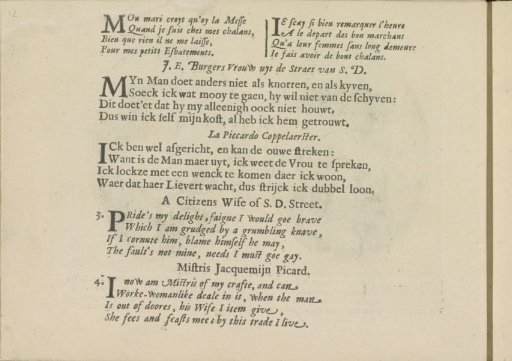 12
MOn mari croyt qu'oy la Messe
Quand je suis ches mes chalans,
Bien que rien il ne me laisse,
Pour mes petits Esbatements.
IE sçay si bien remarquer l'heure
A le depart des bon marchans
Qu'a leur femmes sans long demeure
Je fais avoir de bons chalans.
J. E. Burgers Vrouw uyt de Straet van S. D.
MYn Man doet anders niet als knorren, en als kyven,
Soeck ick wat mooy te gaen, hy wil niet van de schyven:
Dit doet'et dat hy my alleenigh oock niet houwt,
Dus win ick self mijn kost, al heb ick hem getrouwt.
La Piccardo Coppelaerster.
ICk ben wel afgericht, en kan de ouwe streken:
Want is de Man maer uyt, ick weet de Vrou te spreken,
Ick lockze met een wenck te komen daer ick woon,
Waer dat haer Lievert wacht, dus strijck ick dubbel loon.
A Citizens Wife of S. D. Street.
3. PRide's my delight, faigne I would goe brave
Which I am grudged by a grumbling knave,
If I cornute him, blame himself he may,
The fault's not mine, needs I must goe gay.
Mistris Jacquemijn Picard.
4. I now am Mistris of my crafte, and can
Worke-womanlike deale in it, when the man
Is out of doores, his Wife I item give,
She fees and feasts mee: by this trade I live.